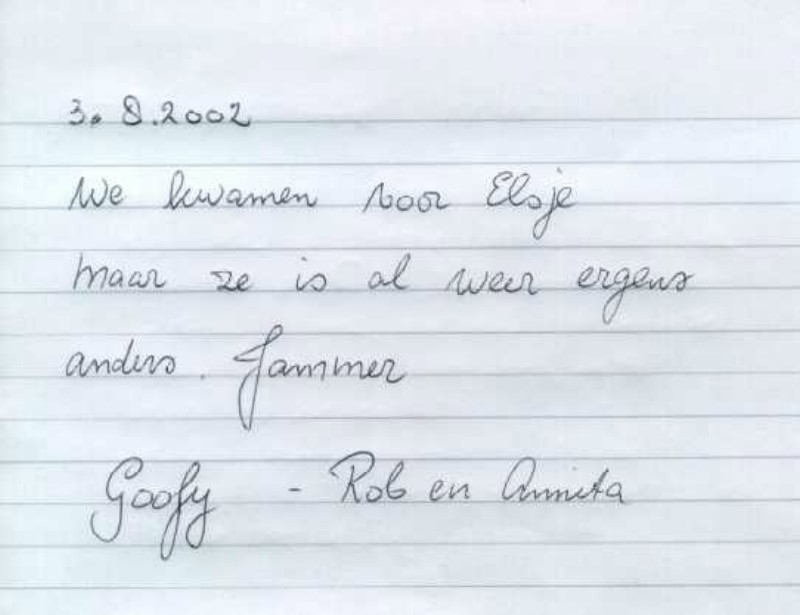 3.8.2002
We kwamen voor Elsje
maar ze is al weer ergens
anders. Jammer
Goofy - Rob en Annita